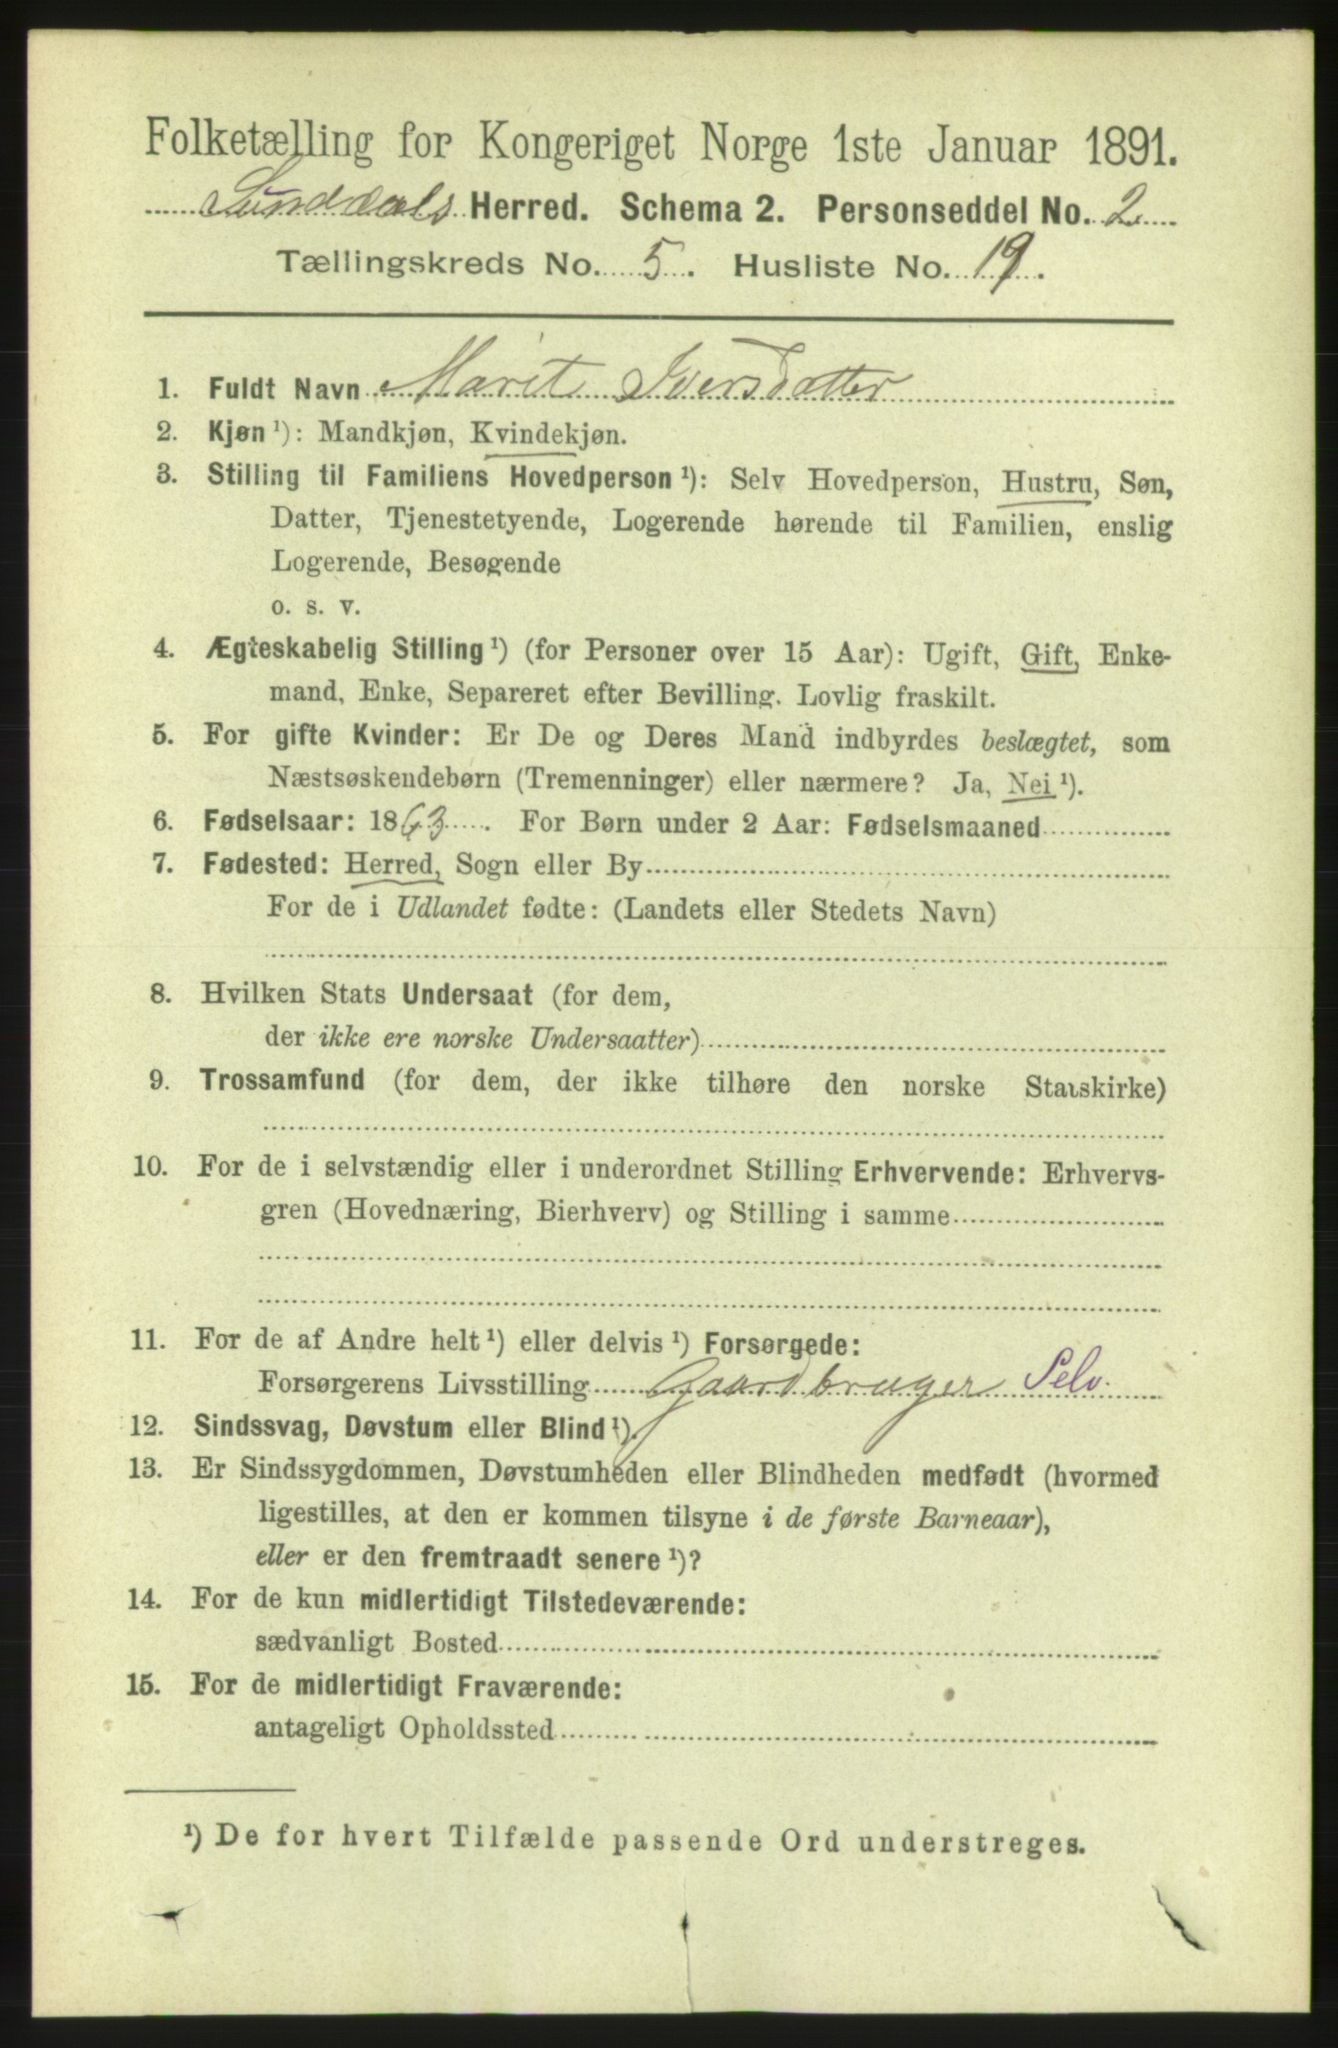 Folketælling for Kongeriget Norge 1ste Januar 1891.
Sunddals Herred. Schema 2. Personseddel No. 2
Tællingskreds No. 5. Husliste No. 19.
1. Fuldt Navn Marit Iversdatter
2. Kjøn ¹): Mandkjøn, Kvindekjøn.
3. Stilling til Familiens Hovedperson ¹): Selv Hovedperson, Hustru, Søn,
Datter, Tjenestetyende, Logerende hørende til Familien, enslig
Logerende, Besøgende
o. s. v.
4. Ægteskabelig Stilling ¹) (for Personer over 15 Aar): Ugift, Gift, Enke-
mand, Enke, Separeret efter Bevilling. Lovlig fraskilt.
5. For gifte Kvinder: Er De og Deres Mand indbyrdes beslægtet, som
Næstsøskendebørn (Tremenninger) eller nærmere? Ja, Nei ¹).
6. Fødselsaar: 1863. For Børn under 2 Aar: Fødselsmaaned
7. Fødested: Herred, Sogn eller By
For de i Udlandet fødte: (Landets eller Stedets Navn)
8. Hvilken Stats Undersaat (for dem,
der ikke ere norske Undersaatter)
9. Trossamfund (for dem, der ikke tilhøre den norske Statskirke)
10. For de i selvstændig eller i underordnet Stilling Erhvervende: Erhvervs-
gren (Hovednæring, Bierhverv) og Stilling i samme
11. For de af Andre helt ¹) eller delvis ¹) Forsørgede:
Forsørgerens Livsstilling Gaardbruger Selv.
12. Sindssvag, Døvstum eller Blind ¹).
13. Er Sindssygdommen, Døvstumheden eller Blindheden medfødt (hvormed
ligestilles, at den er kommen tilsyne i de første Barneaar),
eller er den fremtraadt senere ¹)?
14. For de kun midlertidigt Tilstedeværende:
sædvanligt Bosted
15. For de midlertidigt Fraværende:
antageligt Opholdssted
¹) De for hvert Tilfælde passende Ord understreges.